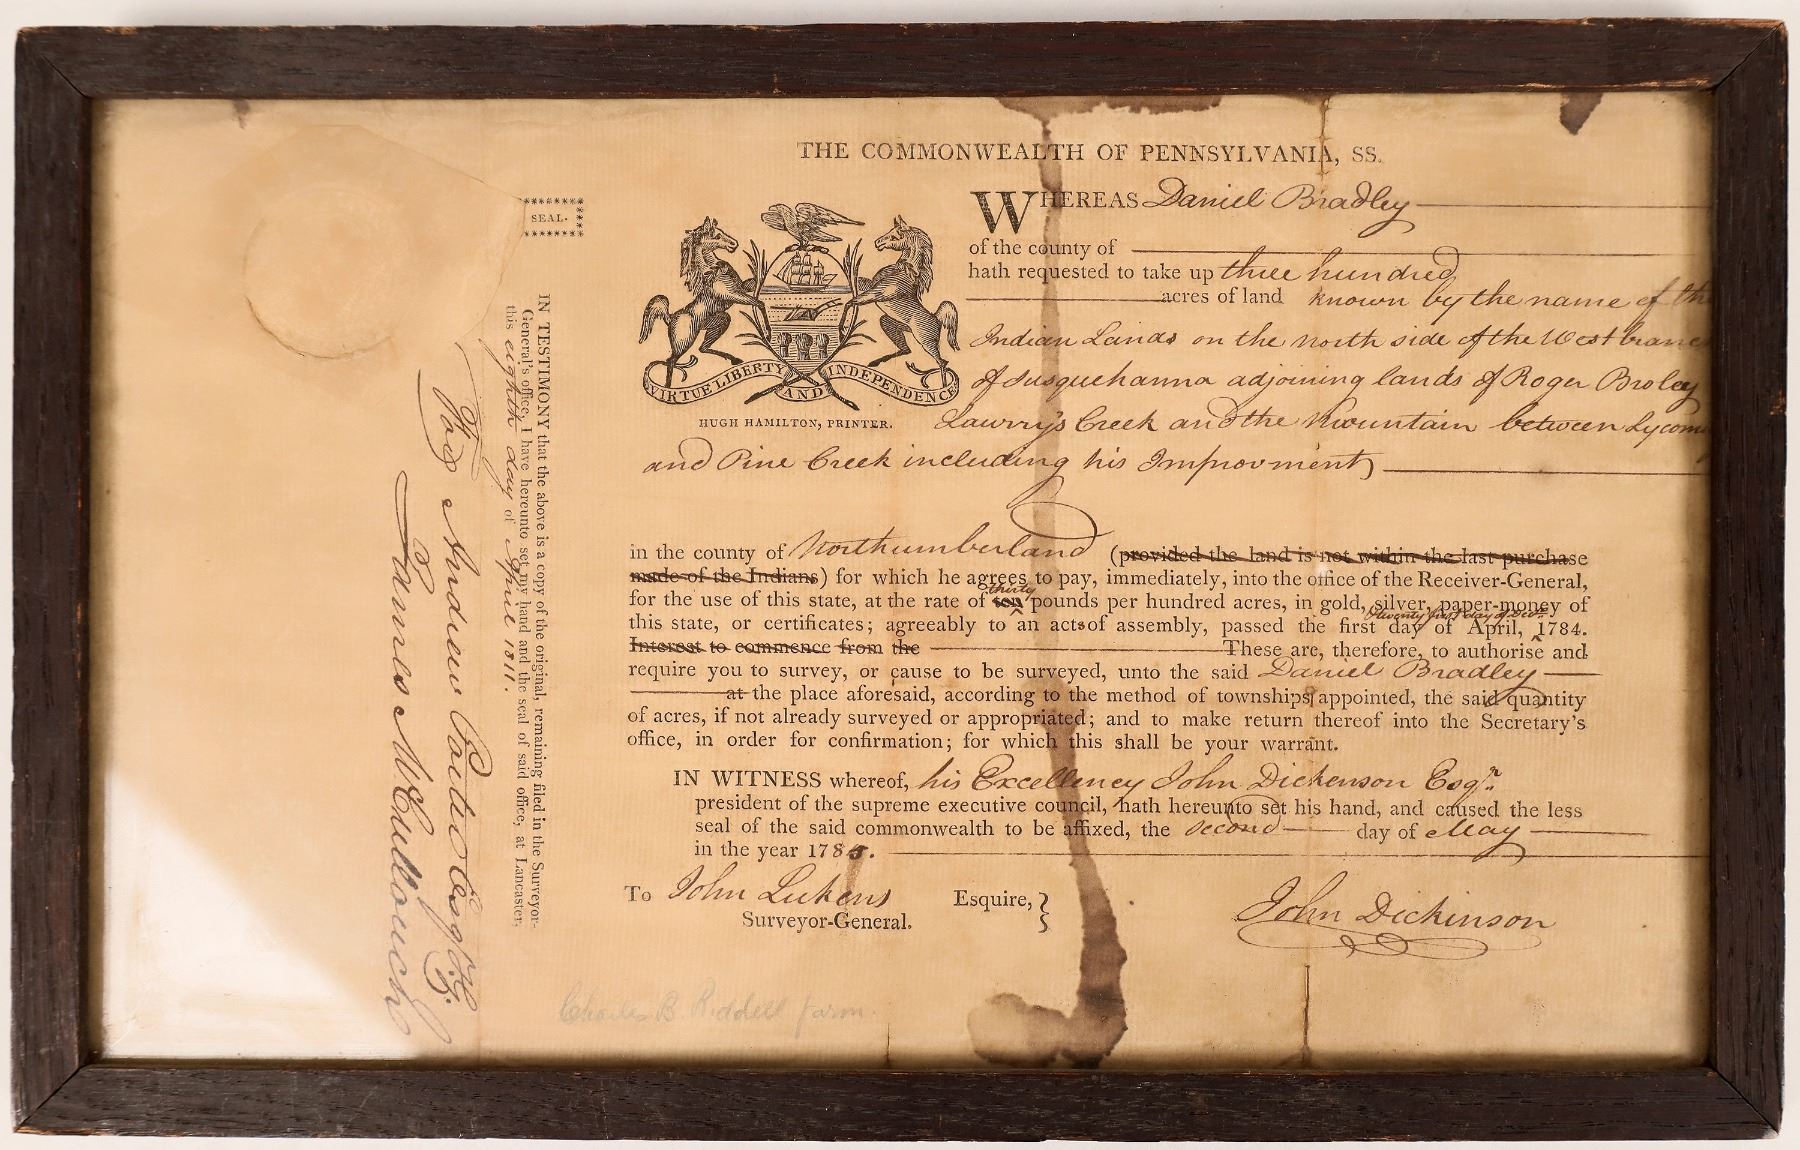 THE COMMONWEALTH OF PENNSYLVANIA, SS.
WHEREAS Daniel Bradley
of the county of
hath requested to take up three hundred
acres of land known by the name of the
Indian Lands on the north side of the West branc
of Susquehanna adjoining lands of Roger Broley
Lawry's Creek and the Mountain between Lycom
and Pine Creek including his Improvment
VIRTUE LIBERTY AND INDEPENDENCE
HUGH HAMILTON, PRINTER.
in the county of Northumberland (provided the land is not within the last purchase
made of the Indians) for which he agrees to pay, immediately, into the office of the Receiver-General,
thirty
for the use of this state, at the rate of ten pounds per hundred acres, in gold, silver, paper-money of
twenty first day of Decr.
this state, or certificates; agreeably to an acts of assembly, passed the first day of April, 1784.
Interest to commence from the These are, therefore, to authorise and
require you to survey, or cause to be surveyed, unto the said Daniel Bradley
at the place aforesaid, according to the method of townships appointed, the said quantity
of acres, if not already surveyed or appropriated; and to make return thereof into the Secretary's
office, in order for confirmation; for which this shall be your warrant.
IN WITNESS whereof, his Excellency John Dickenson Esqr.
president of the supreme executive council, hath hereunto set his hand, and caused the less
seal of the said commonwealth to be affixed, the second day of May
in the year 1785.
To John Lukens Esquire,
Surveyor-General.
John Dickinson
Charles B. Riddell farm.
SEAL.
IN TESTIMONY that the above is a copy of the original, remaining filed in the Surveyor-
General's office, I have hereunto set my hand and the seal of said office, at Lancaster,
this eighth day of April 1811.
For Andrew Porter Esq S. G.
James McCullouch